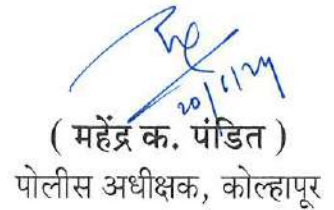 20/1/24
( महेंद्र क. पंडित )
पोलीस अधीक्षक, कोल्हापूर